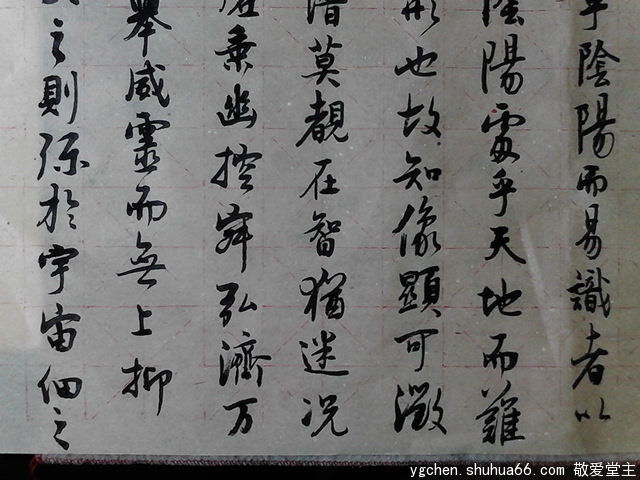 乎陰陽而易識者以
陰陽處乎天地而難
形也故知像顯可徵
潛莫覩在智猶迷况
虛乘幽控寂弘濟万
舉威靈而無上抑
之則弥於宇宙細之
ygchen.shuhua66.com 敬爱堂主